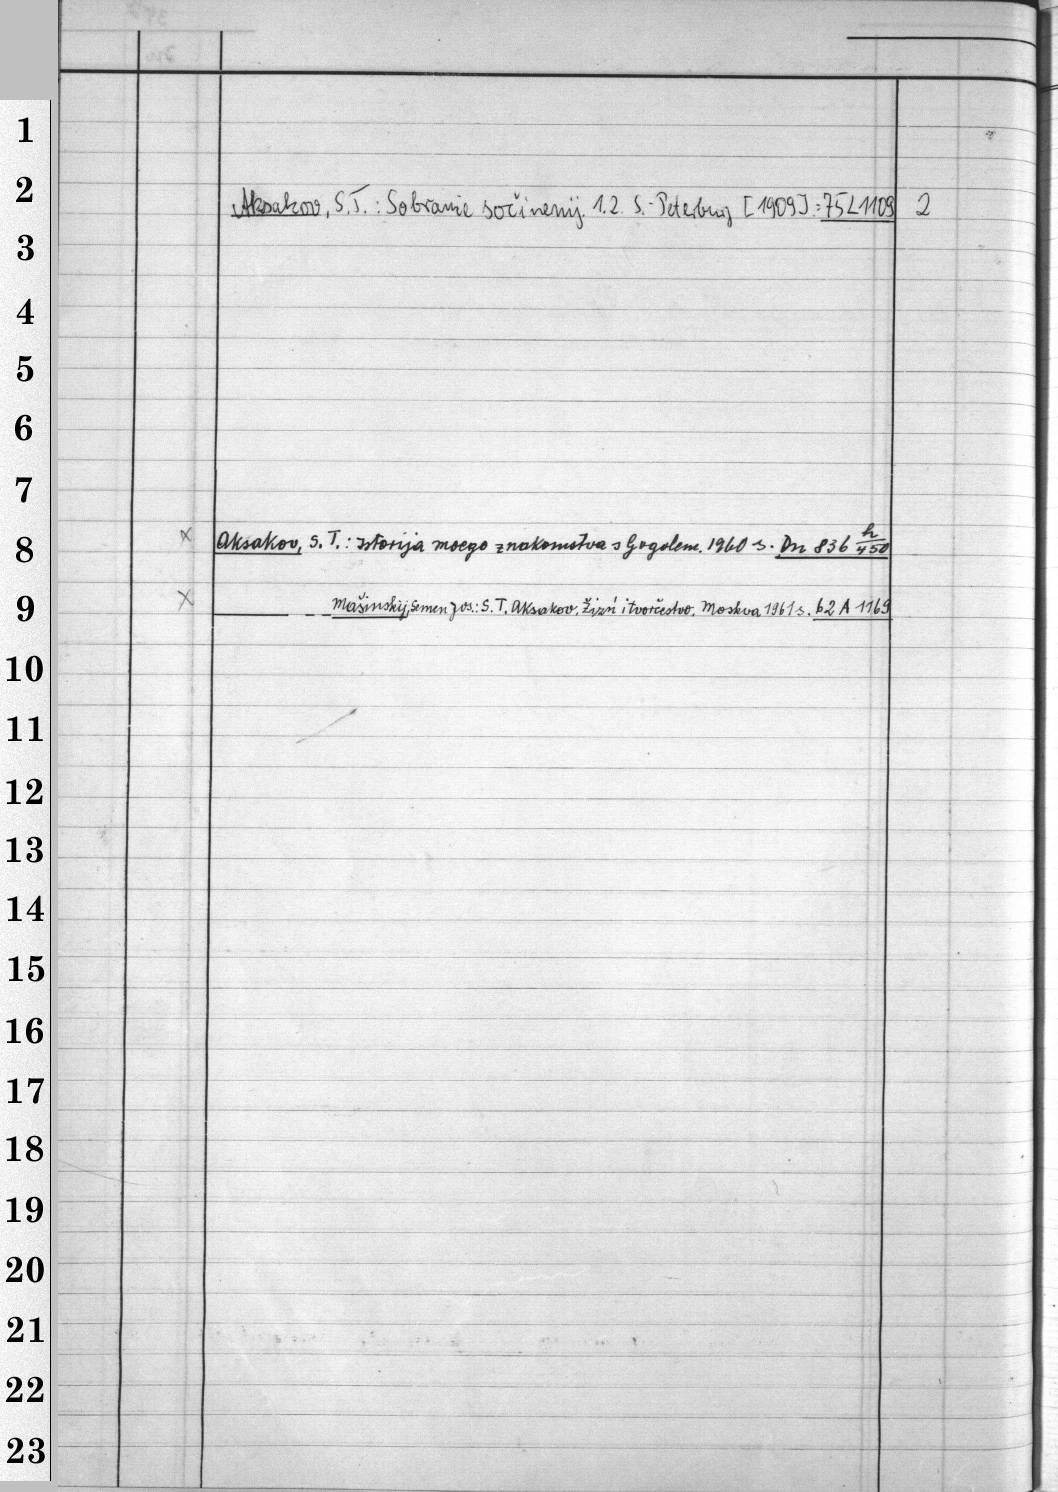 1
2 Aksakov, S.T.: Sobranie sočinenij. 1.2. S.-Peterburg [1909].: 75L1109 2
3
4
5
6
7
8 x Aksakov, S.T.: Istorija moego znakomstva s Gogolem. 1960 s. Dn 836 h/450
9 x Mašinskij, Semen Jos.: S.T. Aksakov. Žizń i tvorčestvo. Moskva 1961 s. 62 A 1169
10
11
12
13
14
15
16
17
18
19
20
21
22
23